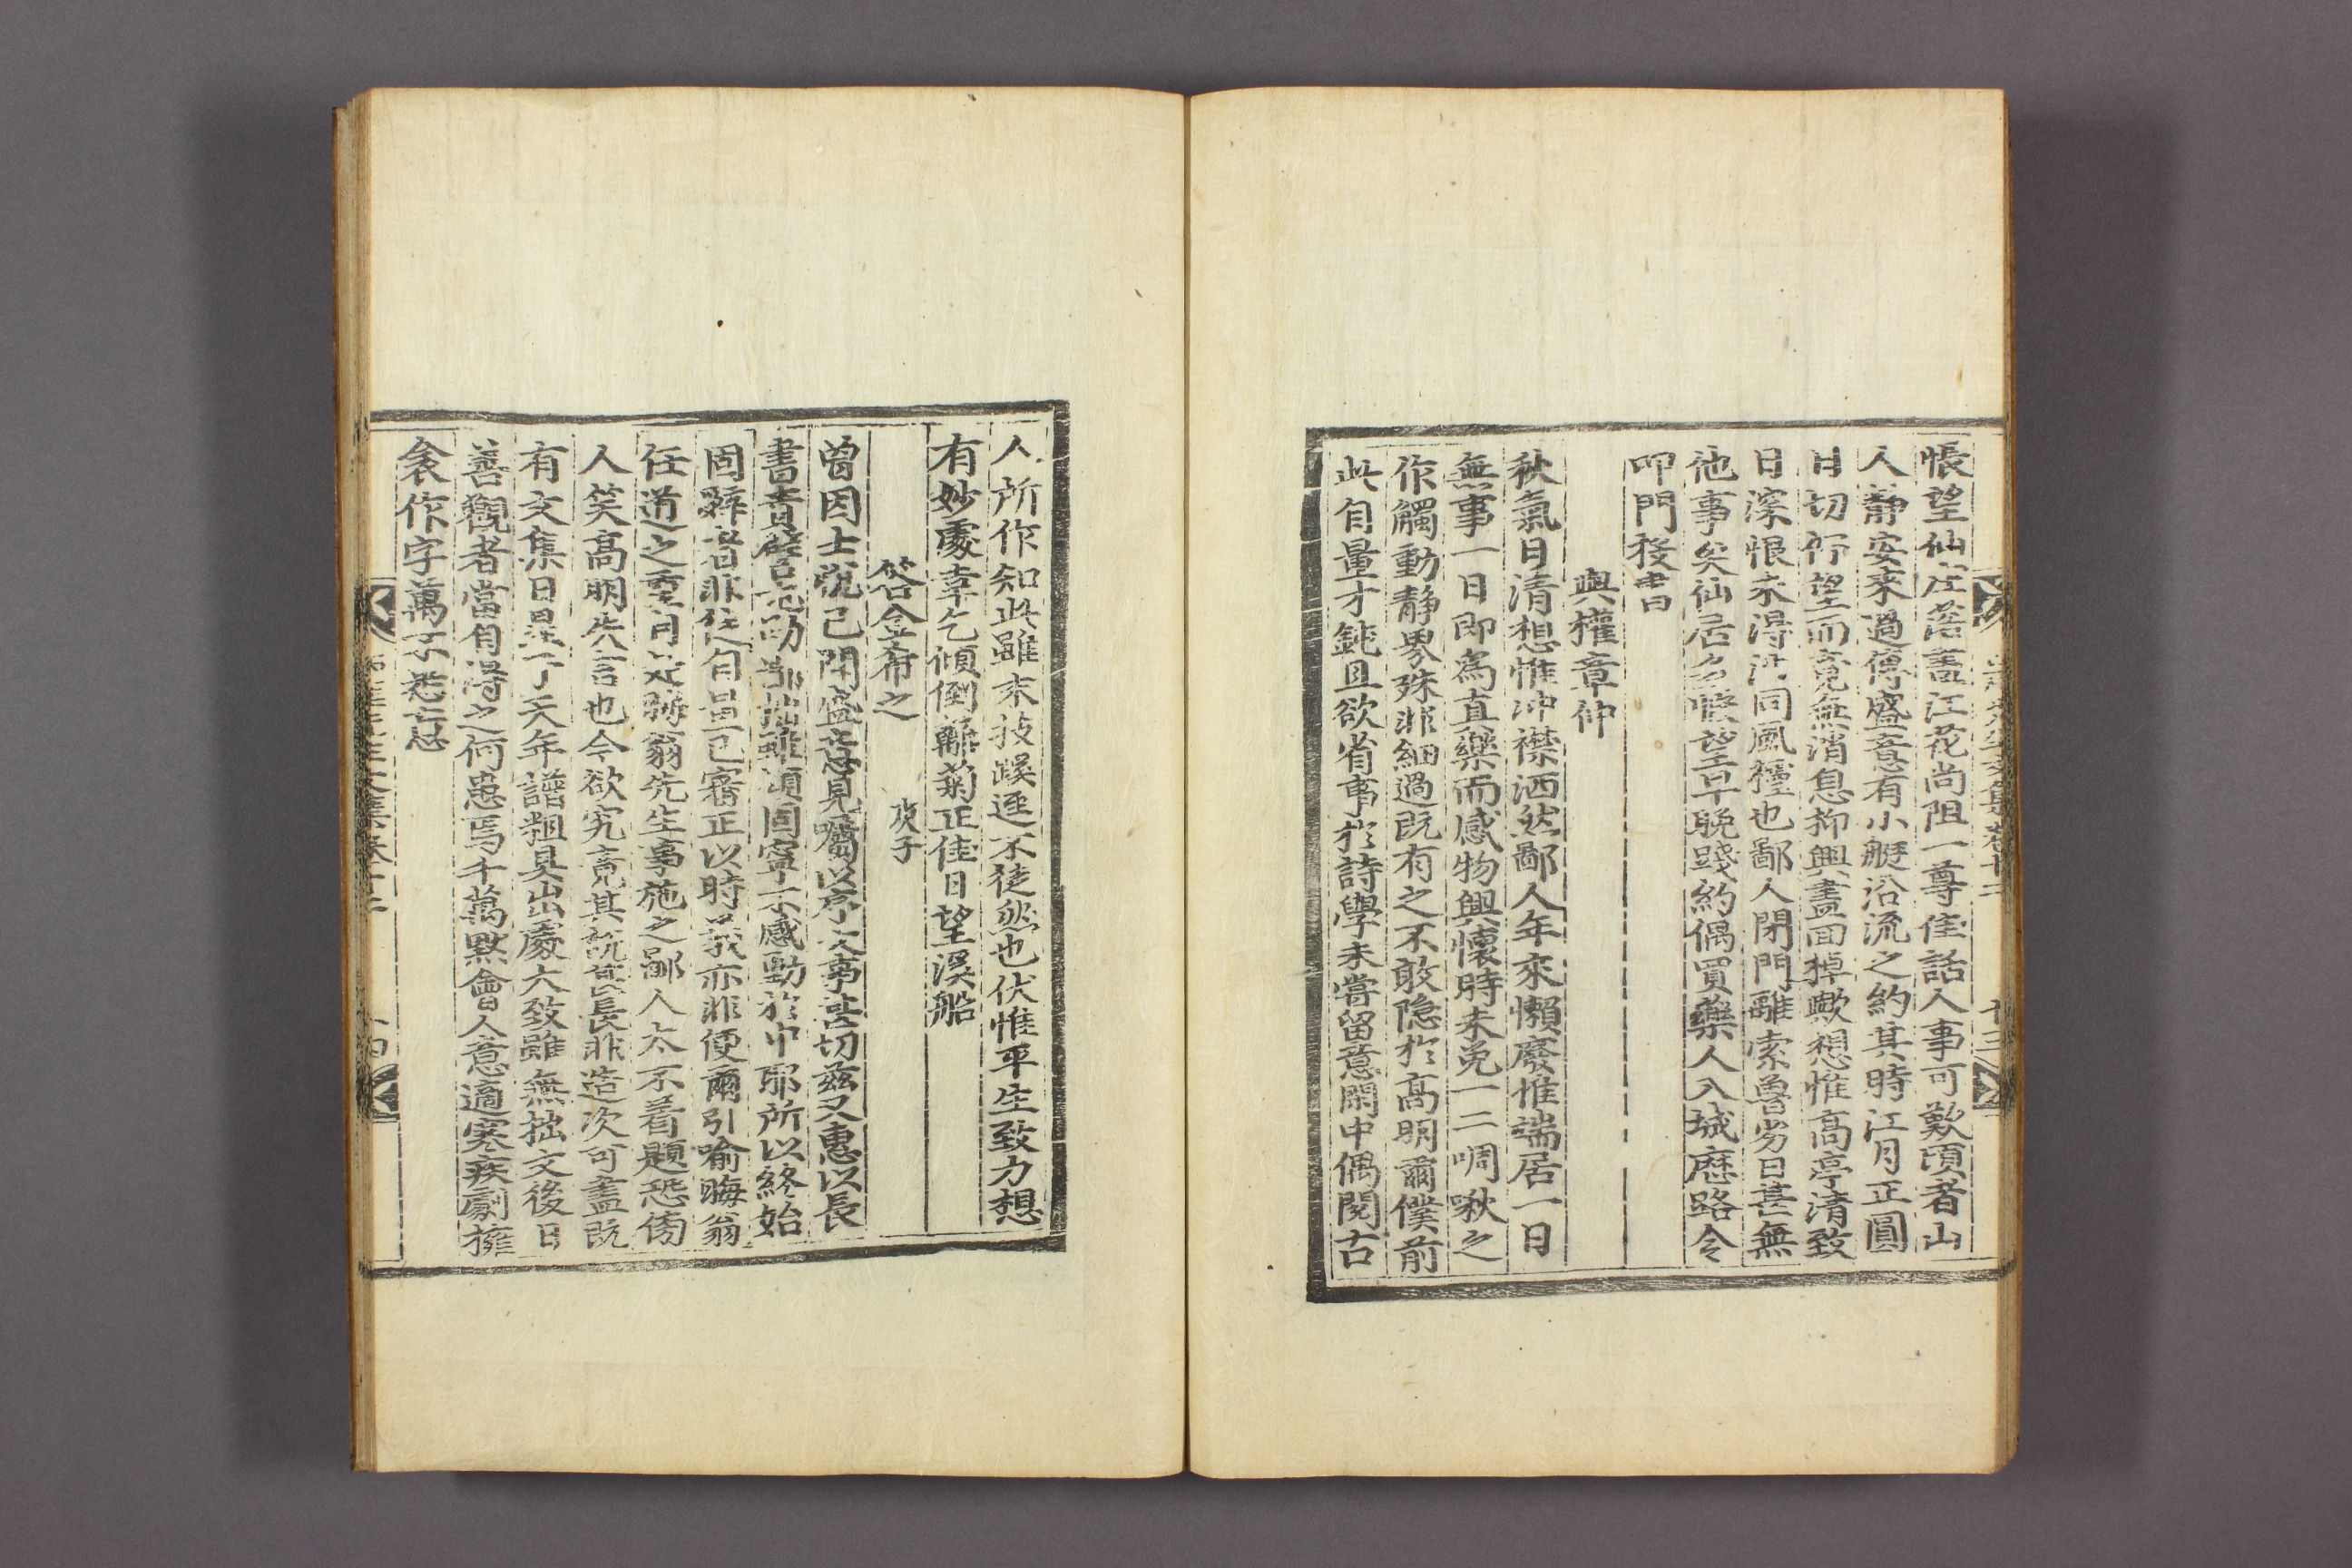 悵望仙庄落盡江花尚阻一尊佳話人事可歎頃者山
人靜安來過傳盛意有小艇沿流之約其時江月正圓
日切佇望而竟無消息抑興盡回棹歟想惟高亭清致
日深恨未得共同風檻也鄙人閉門離索魯劣日甚無
他事矣仙居多悵望早晩踐約偶買藥人入城歷路令
叩門投書
與權章仲
秋氣日清想惟冲襟洒然鄙人年來懶廢惟端居一日
無事一日即爲眞藥而感物興懷時未免一二啁啾之
作觸動靜界殊非細過旣有之不敢隐於高明爾僕前
此自量才鈍且欲省事於詩學未嘗留意閑中偶閱古
人所作知此雖末技蹊逕不徒然也伏惟平生致力想
有妙處幸乞傾倒籬菊正佳日望溪船
答金希之 庚子
曾因士說已聞盛意見囑以序文事甚切玆又惠以長
書責譬 鄙拙雖頑固寧不感動於中耶所以終始
固辭者非徒自量已審正以時義亦非便爾引喩晦翁
任道之重 先生事施之鄙人太不着題恐傍
人笑高明失言也今欲究竟其說甚長非造次可盡旣
有文集 年譜粗具出處大致雖無拙文後日
善觀者當自得之何患焉千萬默會人意適寒疾劇擁
衾作字萬不悉意
先生文集卷十二